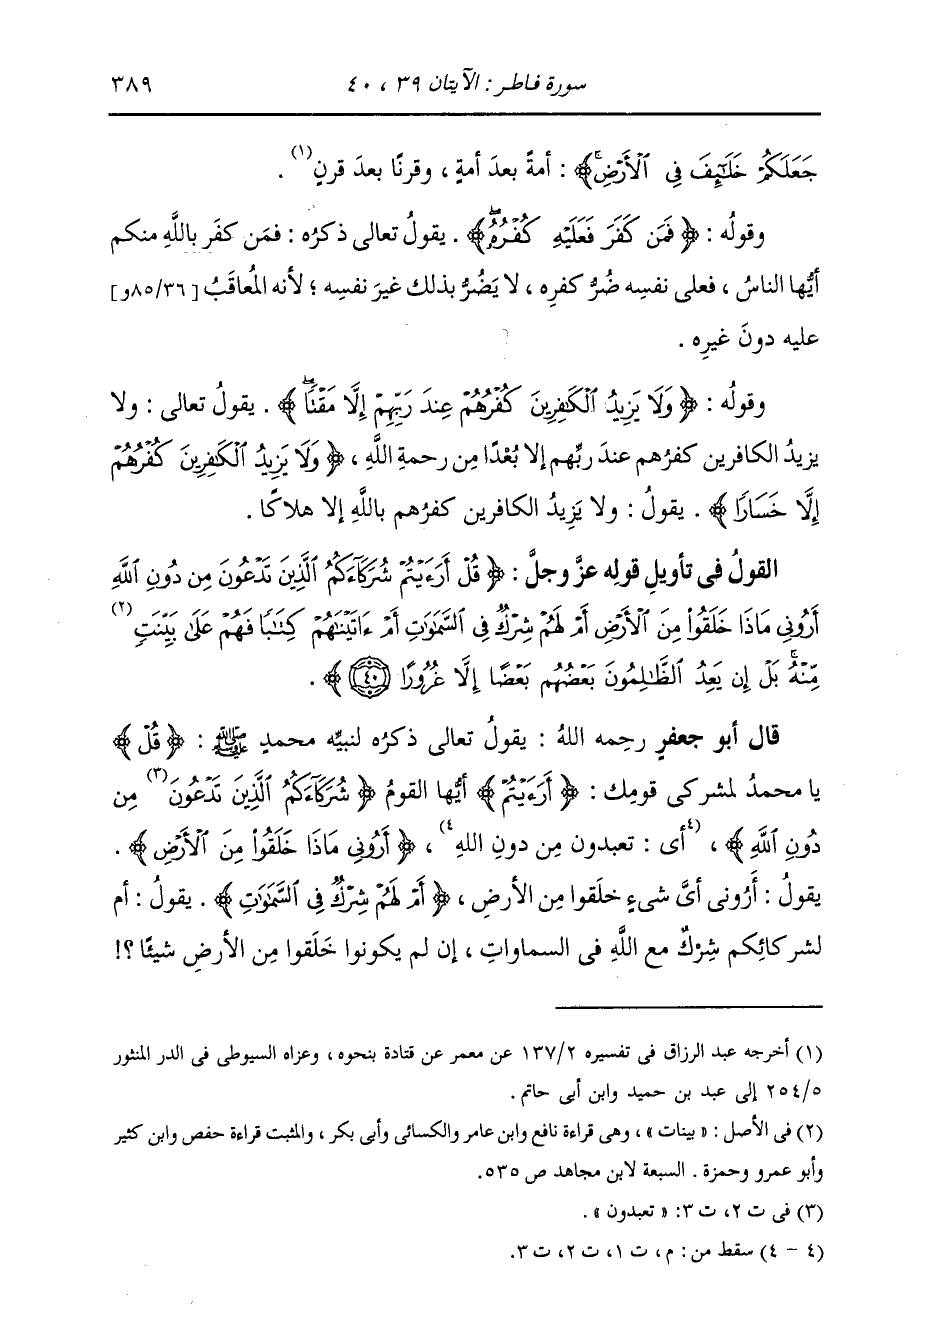 سورة فاطر : الآيتان ٣٩ ، ٤٠ ٣٨٩
جَعَلَكُمْ خَلَٰٓئِفَ فِى ٱلْأَرْضِۚ﴾ : أمةً بعدَ أمةٍ ، وقرنًا بعدَ قرنٍ(١) .
وقولُه : ﴿ فَمَن كَفَرَ فَعَلَيْهِ كُفْرُهُۥۖ﴾ . يقولُ تعالى ذكرُه : فمَن كفَر باللَّهِ منكم
أيُّها الناسُ ، فعلى نفسِه ضُرُّ كفرِه ، لا يَضُرُّ بذلك غيرَ نفسِه ؛ لأنه المُعاقَبُ [٨٥/٣٦و]
عليه دونَ غيرِه .
وقولُه : ﴿ وَلَا يَزِيدُ ٱلْكَٰفِرِينَ كُفْرُهُمْ عِندَ رَبِّهِمْ إِلَّا مَقْتًاۖ ﴾ . يقولُ تعالى : ولا
يزيدُ الكافرين كفرُهم عندَ ربِّهم إلا بُعْدًا مِن رحمةِ اللَّهِ ، ﴿ وَلَا يَزِيدُ ٱلْكَٰفِرِينَ كُفْرُهُمْ
إِلَّا خَسَارًا ﴾ . يقولُ : ولا يَزِيدُ الكافرين كفرُهم باللَّهِ إلا هلاكًا .
القولُ فى تأويلِ قولِه عزَّ وجلَّ : ﴿ قُلْ أَرَءَيْتُمْ شُرَكَآءَكُمُ ٱلَّذِينَ تَدْعُونَ مِن دُونِ ٱللَّهِ
أَرُونِى مَاذَا خَلَقُوا۟ مِنَ ٱلْأَرْضِ أَمْ لَهُمْ شِرْكٌ فِى ٱلسَّمَٰوَٰتِ أَمْ ءَاتَيْنَٰهُمْ كِتَٰبًا فَهُمْ عَلَىٰ بَيِّنَتٍ(٢)
مِّنْهُۚ بَلْ إِن يَعِدُ ٱلظَّٰلِمُونَ بَعْضُهُم بَعْضًا إِلَّا غُرُورًا ٤٠ ﴾ .
قال أبو جعفرٍ رحِمه اللهُ : يقولُ تعالى ذكرُه لنبيِّه محمدٍ ﷺ : ﴿ قُلْ ﴾
يا محمدُ لمشركى قومِك : ﴿ أَرَءَيْتُمْ ﴾ أيُّها القومُ ﴿ شُرَكَآءَكُمُ ٱلَّذِينَ تَدْعُونَ(٣) مِن
دُونِ ٱللَّهِ ﴾ ، (٤أى : تعبدون مِن دونِ اللهِ٤) ، ﴿ أَرُونِى مَاذَا خَلَقُوا۟ مِنَ ٱلْأَرْضِ ﴾ .
يقولُ : أَرُونى أىَّ شىءٍ خلَقوا مِن الأرضِ ، ﴿ أَمْ لَهُمْ شِرْكٌ فِى ٱلسَّمَٰوَٰتِ ﴾ . يقولُ : أم
لشركائِكم شِرْكٌ مع اللَّهِ فى السماواتِ ، إن لم يكونوا خَلَقوا مِن الأرضِ شيئًا ؟!
(١) أخرجه عبد الرزاق فى تفسيره ١٣٧/٢ عن معمر عن قتادة بنحوه ، وعزاه السيوطى فى الدر المنثور
٢٥٤/٥ إلى عبد بن حميد وابن أبى حاتم .
(٢) فى الأصل : « بينات » ، وهى قراءة نافع وابن عامر والكسائى وأبى بكر ، والمثبت قراءة حفص وابن كثير
وأبو عمرو وحمزة . السبعة لابن مجاهد ص ٥٣٥.
(٣) فى ت ٢، ت ٣: « تعبدون » .
(٤ - ٤) سقط من : م ، ت ١، ت ٢، ت ٣.